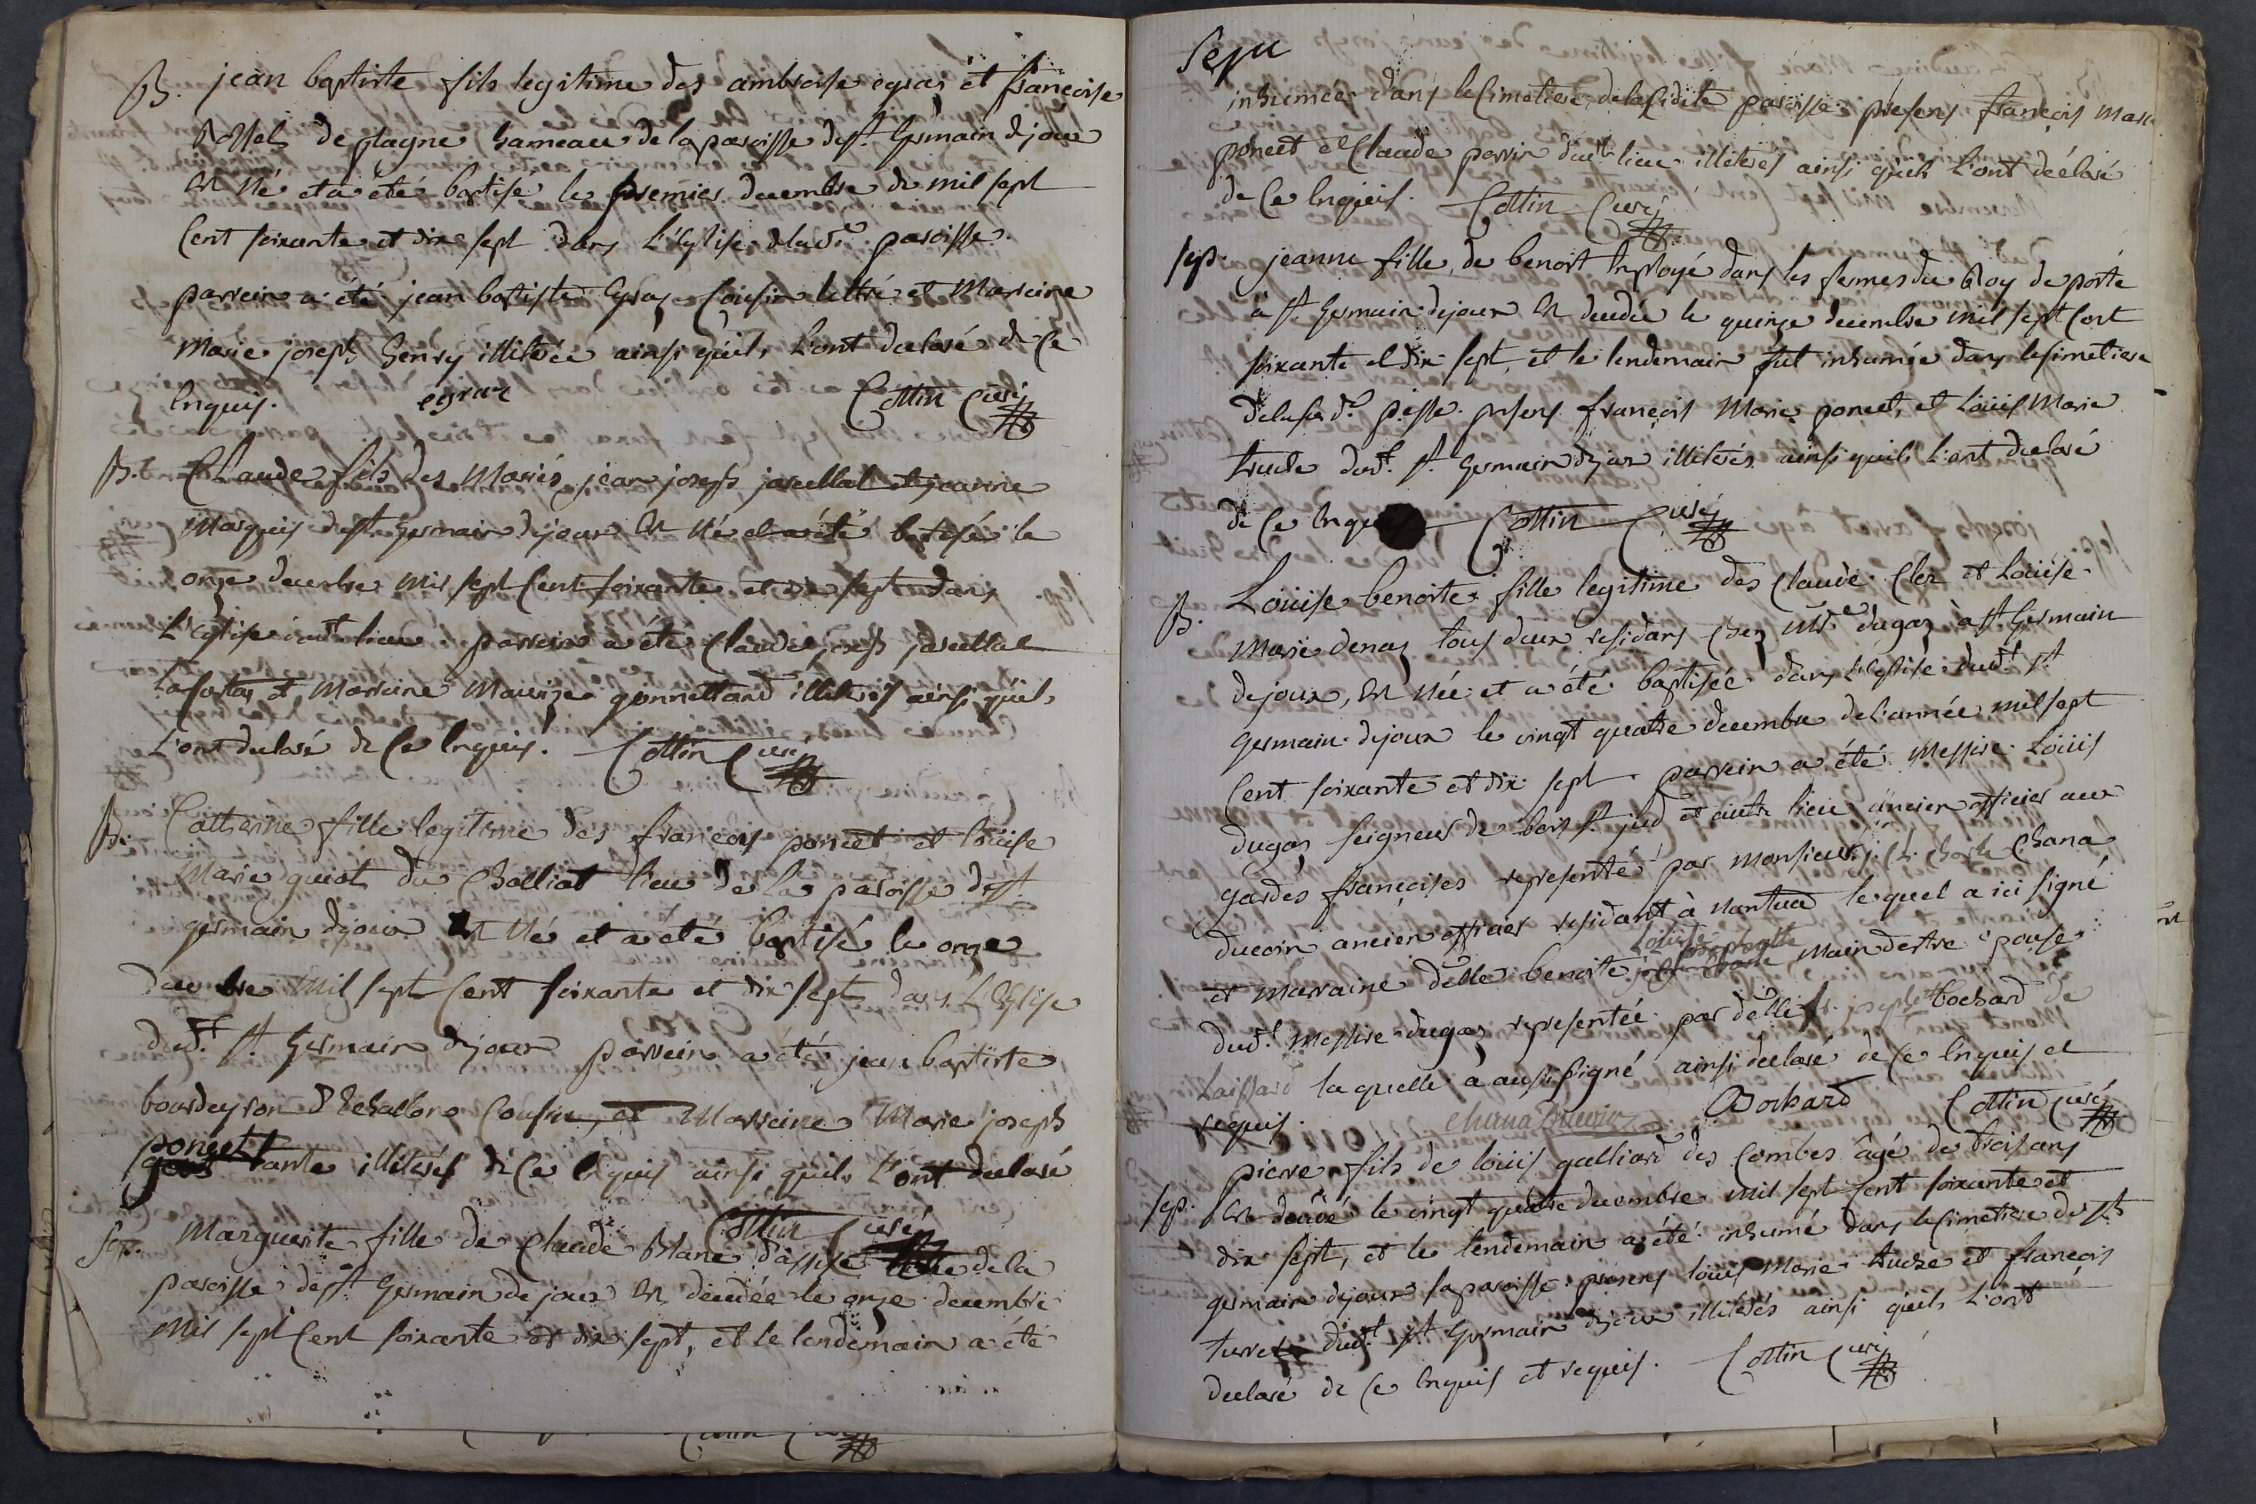 B. jean baptiste fils legitime des ambroise egraz et francoise
Rossel de plagne hameau de la paroisse de st. Germain dejoux
est né et a été baptise le premier decembre de mil sept
Cent soixante et dix sept dans L'eglise de lad.e paroisse.
parrein a été jean baptiste Egraz Cousin lettré et Marreine
Marie joseph henry illiterée ainsi qu'ils L'ont declaré de Ce
Enquis. egraz Cottin Curé
B. Claude fils des Mariés jean joseph jaculliat et jeanne
Marquis de st Germain dejoux est né et a été baptisé le
onze decembre mil sept Cent soixante et dix sept dans
L'eglise dud.t lieu parrein a été Claude joseph jaculliat
et Marreine Maurize gonnettand illiterés ainsi qu'ils
L'ont declaré de Ce Enquis. Cottin Curé
B. Catherine fille legitime des francois poncet et Loüise
Marie guiot du Challiat lieu de la paroisse de st
germain dejoux est né et a été baptisé le onze
decembre mil sept Cent soixante et dix sept dans L'Eglise
dud.t st. Germain dejoux parrein a été jean baptiste
bourdeyron d'Echallon Cousin, et Marreine Marie joseph
poncet tante illiterés de Ce Enquis ainsi qu'ils L'ont declaré
Cottin Curé
Sep. Marguerite fille de Claude Blanc de la
paroisse de st Germain de joux est decedée le onze decembre
Mil sept Cent soixante et dix sept, et le lendemain a été
Sepu
inhumée dans le Cimetiere de la susdite paroisse presens françois Marie
poncet et Claude perrin dud.t lieu illiterés ainsi qu'ils L'ont declaré
de Ce Enquis. Cottin Curé
sep. jeanne fille de benoit Employé dans les fermes du Roy de poste
à st Germain dejoux est decedée le quinze decembre mil sept Cent
soixante et dix sept, et le lendemain fut inhumée dans le Cimetiere
de la sus d.e p.sse presens françois Marie poncet, et Loüis Marie
truche dud.t st. Germain dejoux illiterés ainsi qu'ils L'ont declaré
de Ce Enquis Cottin Curé
B. Loüise benoite fille legitime des Claude Clez et Loüise
Marie denaz tous deux residans chez Mr. dugaz à st Germain
dejoux, est née et a été baptisée dans L'eglise dud.t st
Germain dejoux le vingt quatre decembre de L'année mil sept
Cent soixante et dix sept. parrein a été Messire Loüis
dugaz Seigneur de bois st jud et autre lieu ancien officier aux
gardes françaises representé par Monsieur Chana
ducoin ancien officier residant à Nantua lequel a ici signé
et marraine delle benoite Loüise main destre épouse
dud.t Messire dugaz representée par delle josephe Bochard de
Laissard laquelle a aussi signé ainsi declaré de Ce Enquis et
requis. Chana Ducoin Bochard Cottin Curé
sep. pierre fils de loüis galliard des Combes âgé de trois ans
est decedé le vingt quatre decembre mil sept Cent soixante et
dix sept, et le lendemain a été inhumé dans le Cimetiere de st
germain dejoux sa paroisse presens loüis Marie truche et françois
turrel dud.t st Germain dejoux illiterés ainsi qu'ils L'ont
declaré de Ce Enquis et requis. Cottin Curé